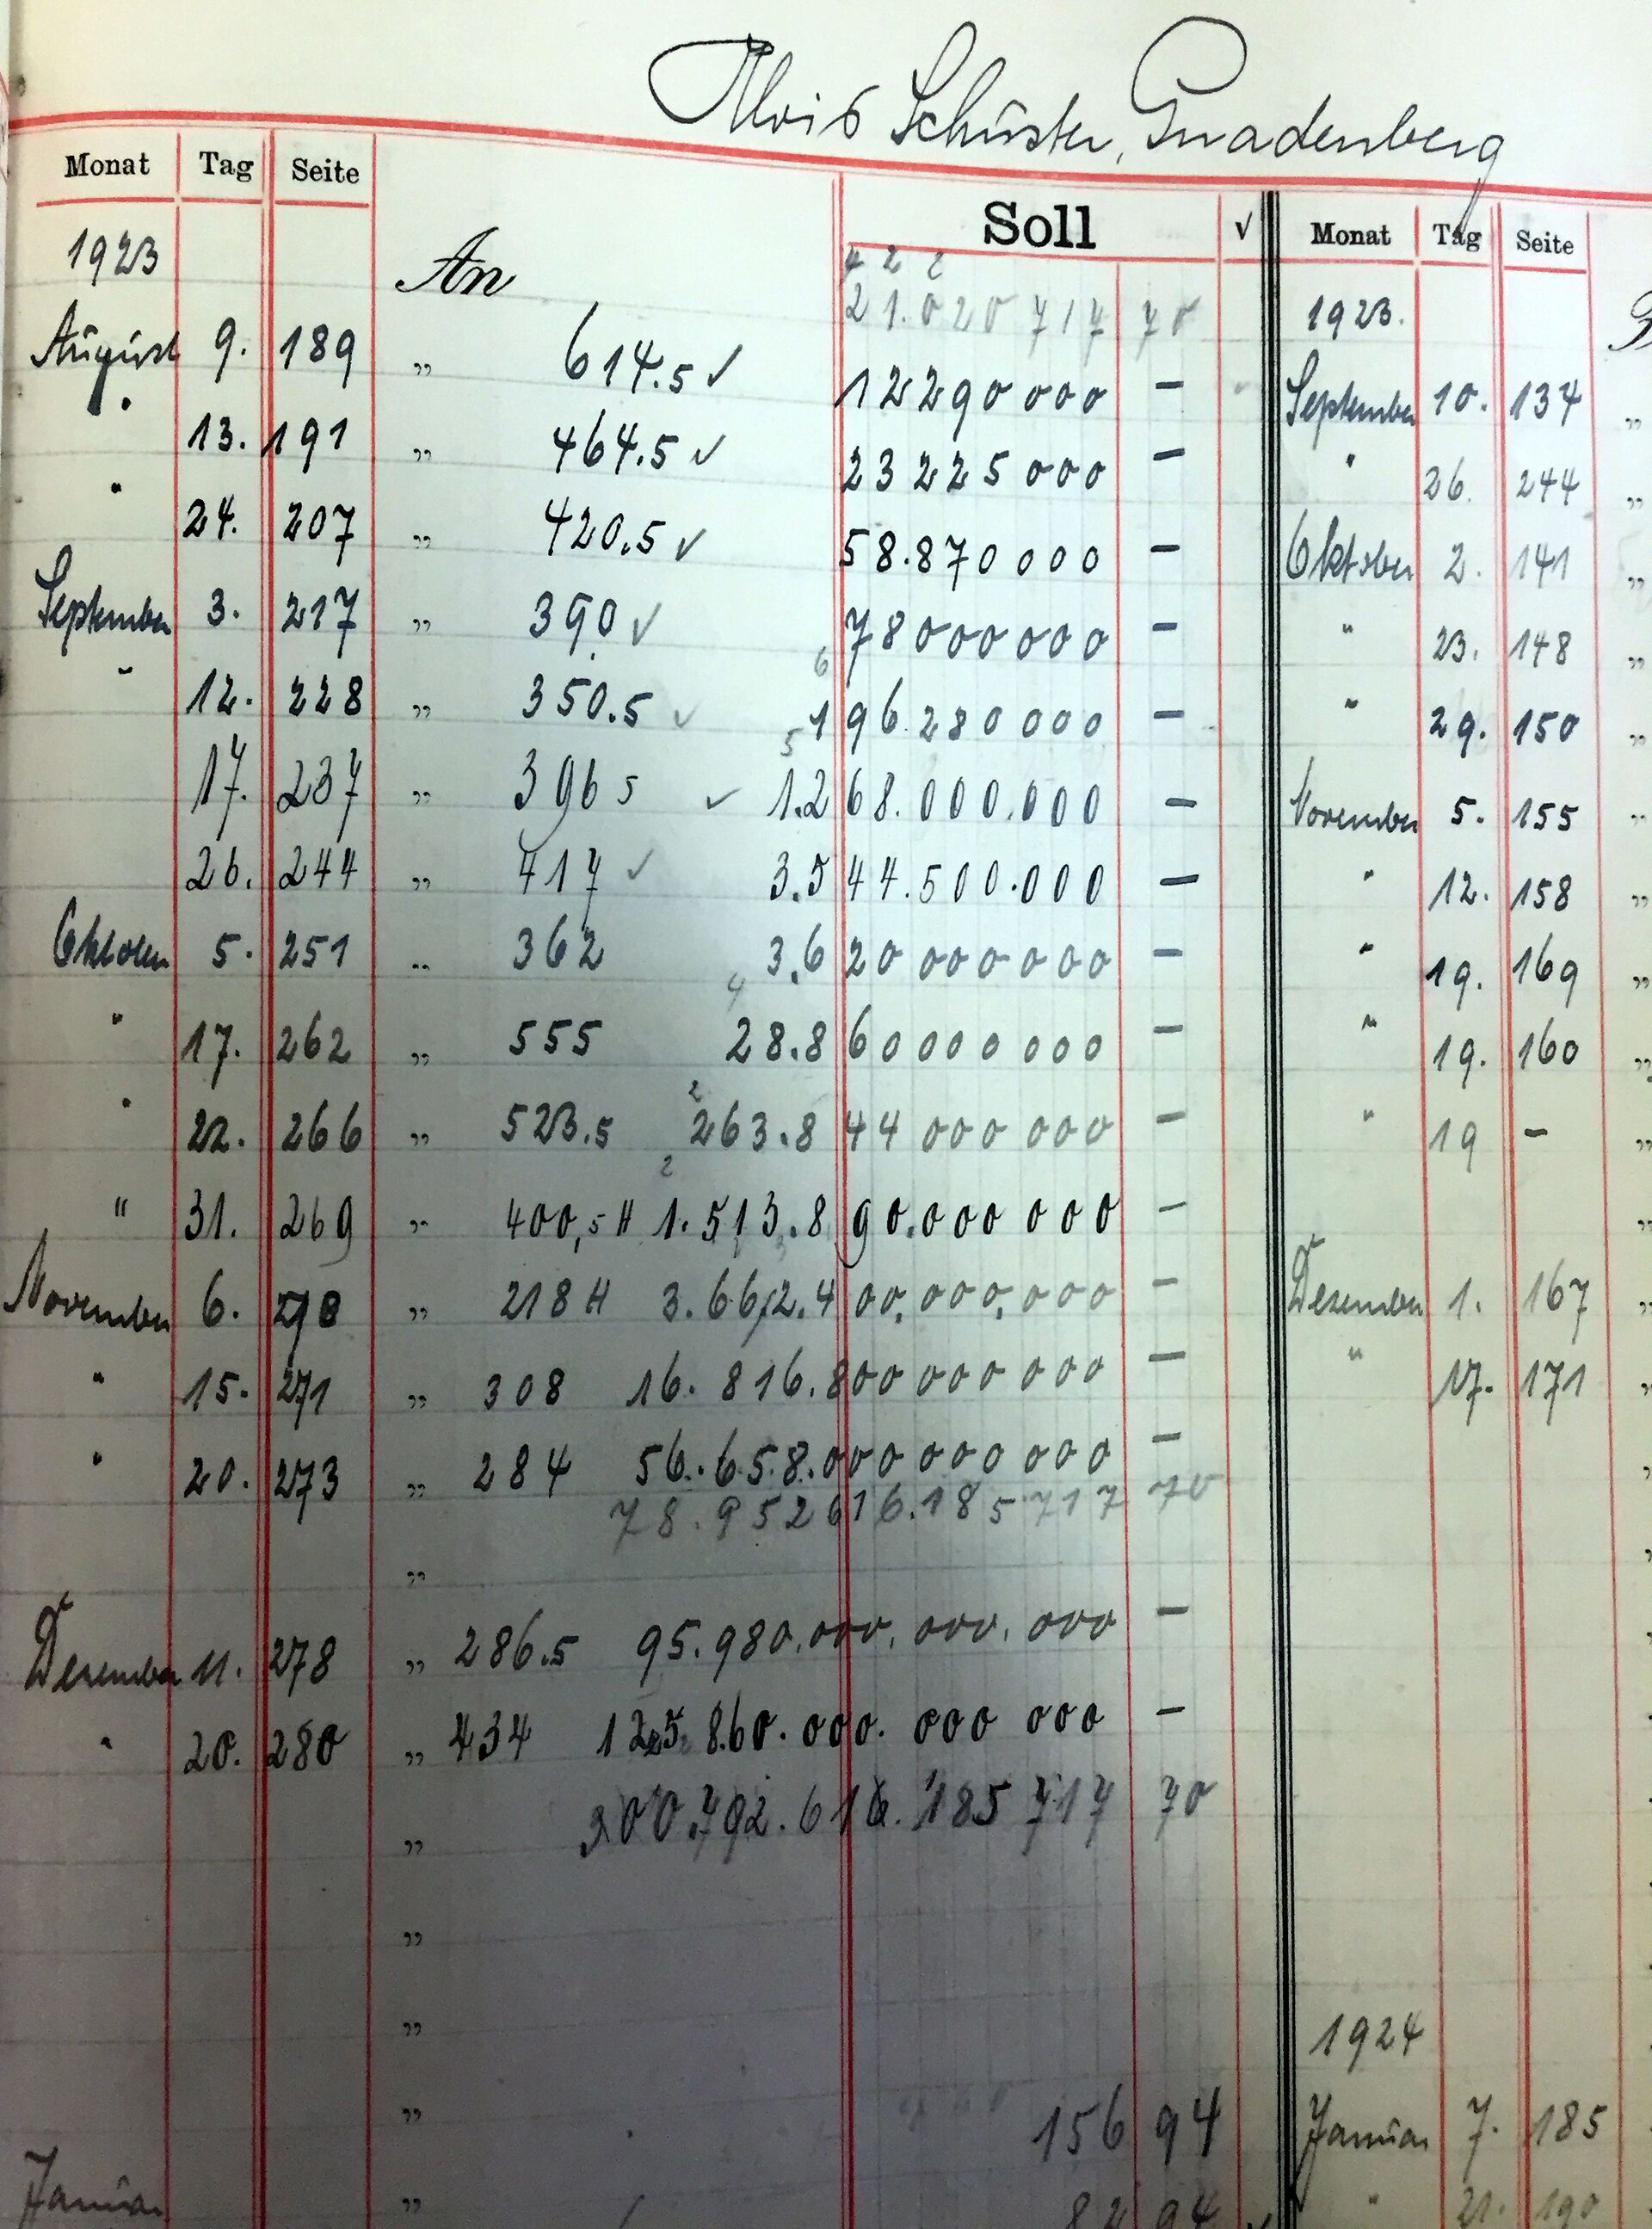 Alois Schuster, Gnadenberg
Monat Tag Seite Soll √ Monat Tag Seite
4 2 2
1923 An 21.020 717 70 1923.
August 9. 189 „ 614.5 ✓ 12290000 — September 10. 134 „
" 13. 191 „ 464.5 ✓ 23225000 — " 26. 244 „
" 24. 207 „ 420.5 ✓ 58.870000 — Oktober 2. 141 „
September 3. 217 „ 390 ✓ 78000000 — " 23. 148 „
6
" 12. 228 „ 350.5 ✓ 196.280000 — " 29. 150 „
5
17. 237 „ 396 5 ✓ 1.268.000.000 — November 5. 155 „
26. 244 „ 417 ✓ 3.544.500.000 — " 12. 158 „
Oktober 5. 251 „ 362 3.620 000000 — " 19. 169 „
4
" 17. 262 „ 555 28.860000000 — " 19. 160 „
2
" 22. 266 „ 523.5 263.844 000 000 — " 19 — „
2
" 31. 269 „ 400,5 H 1.513.890.000 000 — „
November 6. 270 „ 218 H 3.662.400.000.000 — Dezember 1. 167 „
" 15. 271 „ 308 16.816.800 000 000 — " 17. 171 „
" 20. 273 „ 284 56.658.000 000 000 — „
78.952616.185 717 70
„
Dezember 11. 278 „ 286.5 95.980.000.000.000 —
" 20. 280 „ 434 125.860.000.000 000 —
„ 300.792.616.185 717 70
„
„ 1924
„ 156 94 Januar 7. 185
Januar „ 82 94 ✓ " 21. 190